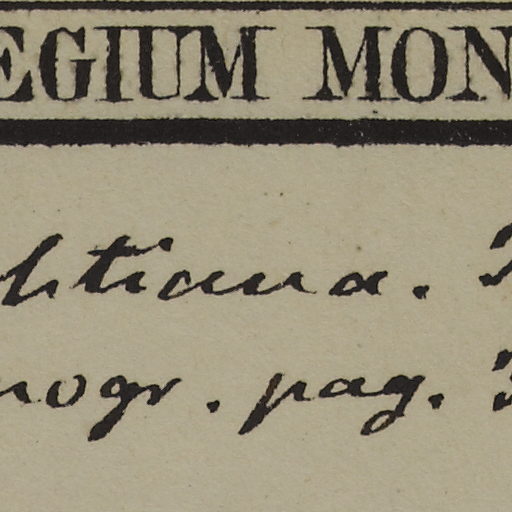 EGIUM MON
ltiana.
nogr. pag. 3